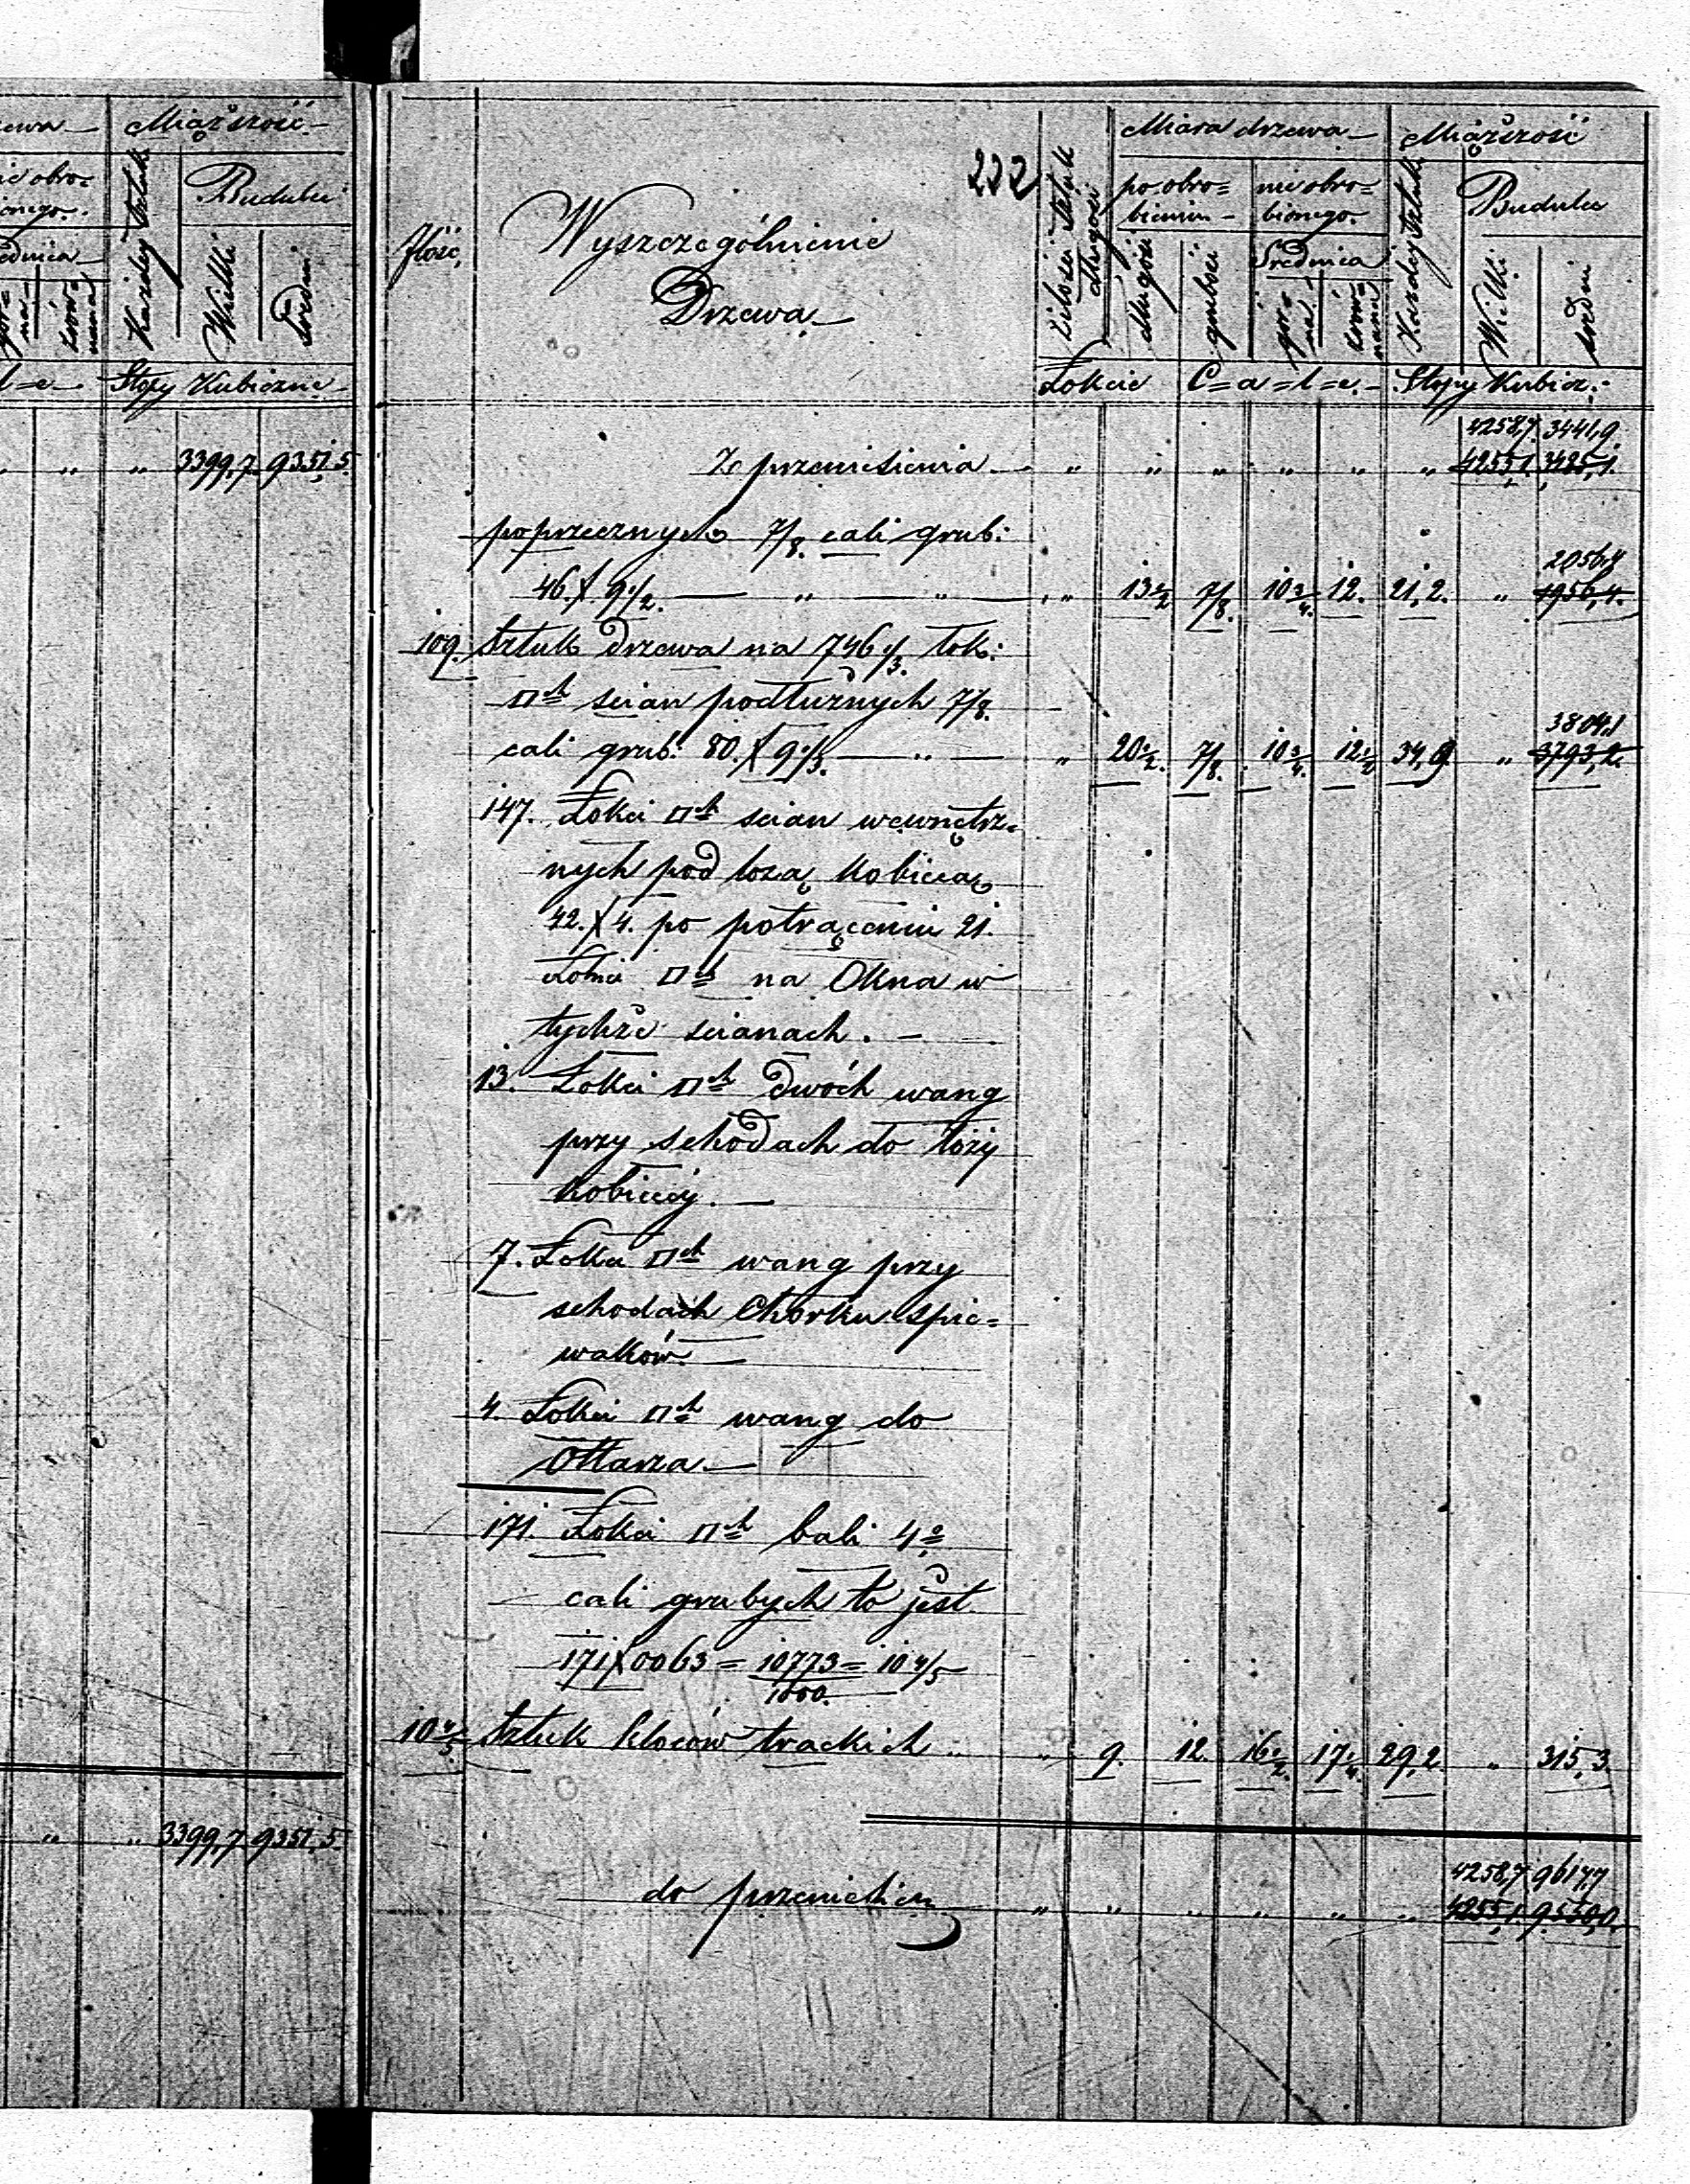 Miąższość
Budulec
Każdej sztuki
Wielki
Średni
Stopy Kubiczne
" " 3399,7. 9351,5.
" " 3399,7 9351,5.
222
Ilość
Wyszczególnienie
Drzewa
Miara drzewa
Miąższość
po obro=
bieniu
nie obro=
bionego.
Budulec
długości
grubości
Średnica
gór=
na
Każdej sztuki
Wielki
średni
Łokcie C=a=l=e. Stopy Kubicz:
4258,7. 3441,9.
Z przeniesienia " " " " " " 4255,1. 3485,1.
poprzecznych 7/8. cali grub:
2056,4
46. X 9 1/2. " " " 13 1/2 7/8. 10 3/4. 12. 21,2. " 1956,4.
109. Sztuk drzewa na 746 2/3. łok:
□ch scian podłużnych 7/8.
3804,1
cali grub: 80. X 9 1/3. " " 20 1/2. 7/8. 10 3/4. 12 1/2 34,9 " 3793,2.
147. Łokci □ch scian wewnętrz=
nych pod lożą Kobiecą
42. X 4. po potrąceniu 21.
Łokci □ch na Okna w
tychże scianach.
13. Łokci □ch dwóch wang
przy schodach do loży
Kobiecej.
7. Łokci □ch wang przy
schodach Chorku Spie=
waków.
4. Łokci □ch wang do
Ołtarza.
171. Łokci □ch bali 4o
cali grubych to jest
171 X 0063 = 10773 = 10 4/5
1000.
10 4/5. Sztuk kloców trackich " " 9. 12. 16 1/2. 17 1/4. 29,2 " 315,3.
4258,7 9617,7
do przeniesien " " " " " " 4255,1. 9550,0.